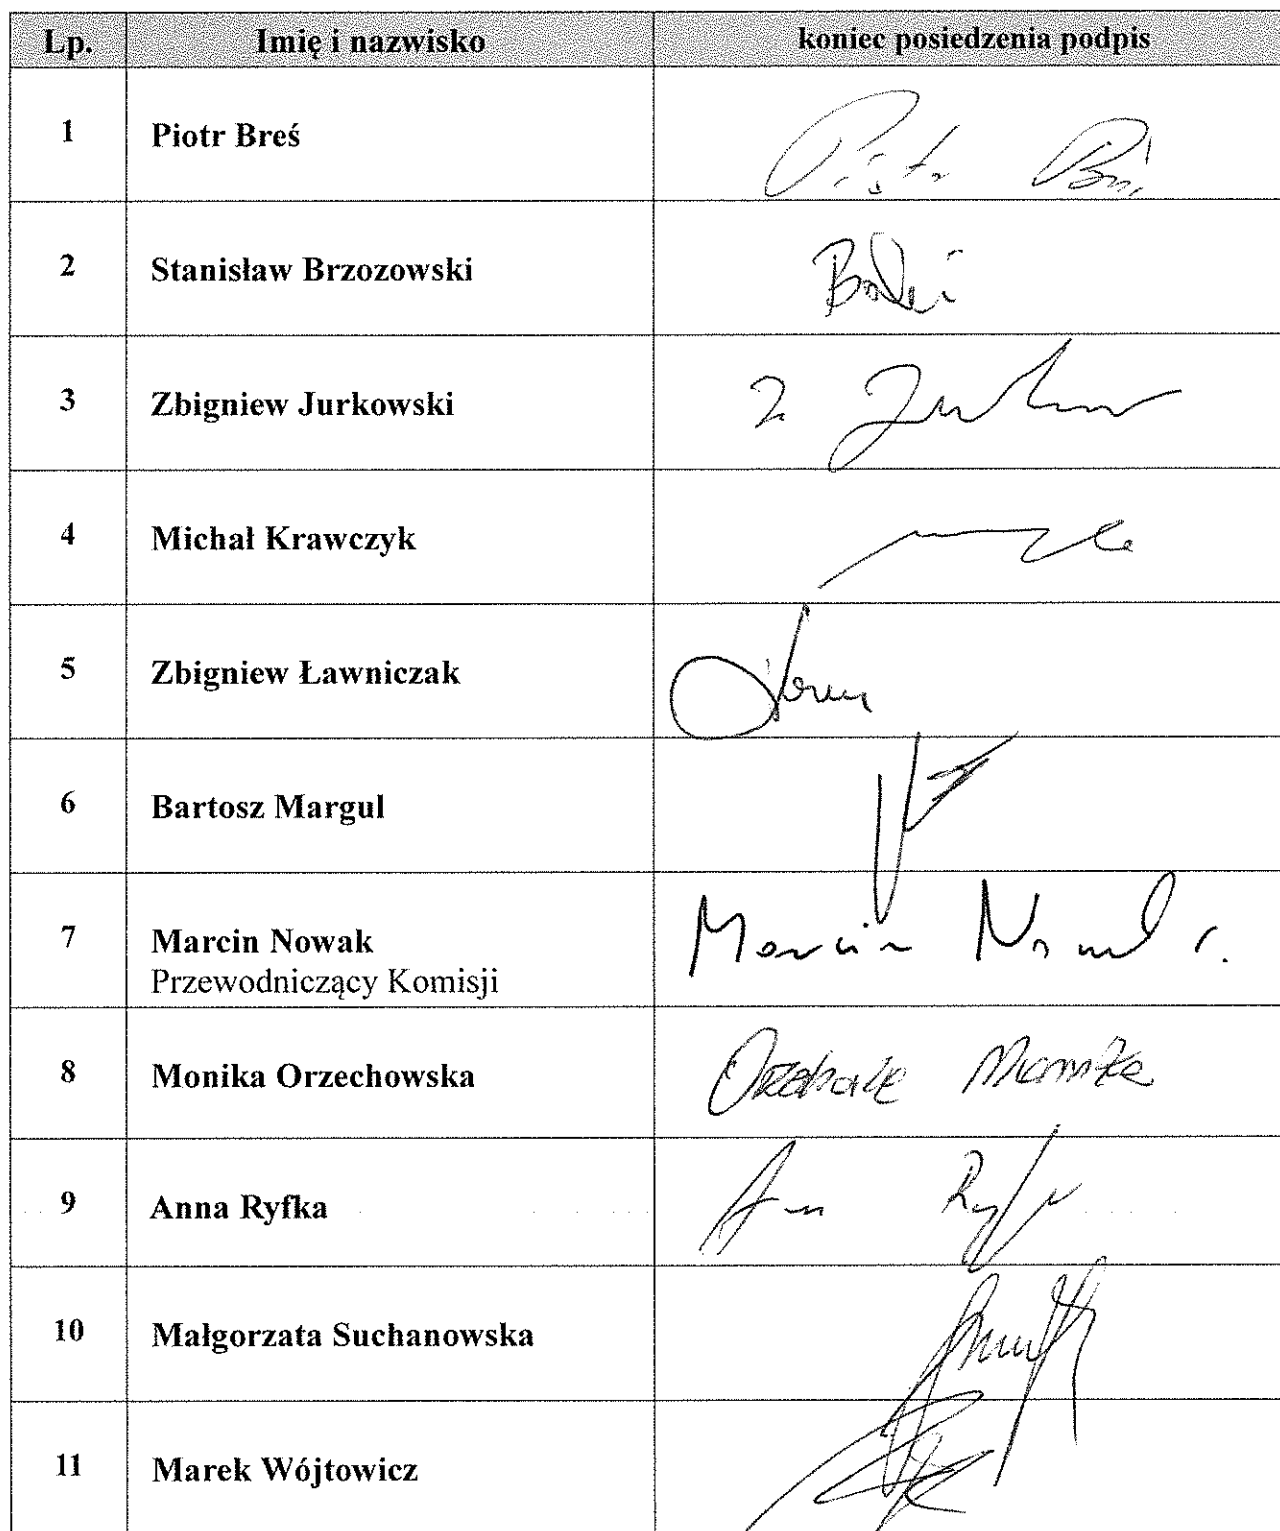 Lp. Imię i nazwisko koniec posiedzenia podpis
1 Piotr Breś
2 Stanisław Brzozowski
3 Zbigniew Jurkowski
4 Michał Krawczyk
5 Zbigniew Ławniczak
6 Bartosz Margul
7 Marcin Nowak Marcin Nowak
Przewodniczący Komisji
8 Monika Orzechowska
9 Anna Ryfka
10 Małgorzata Suchanowska
11 Marek Wójtowicz